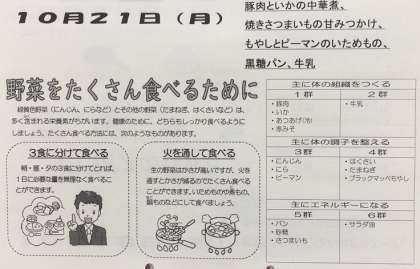 10月21日(月)
豚肉といかの中華煮、
焼きさつまいもの甘みつかけ、
もやしとピーマンのいためもの、
黒糖パン、牛乳
野菜をたくさん食べるために
緑黄色野菜(にんじん、にらなど)とその他の野菜(たまねぎ、はくさいなど)は、
多く含まれる栄養素がちがいます。健康のために、どちらもしっかり食べるように
しましょう。たくさん食べる方法には、次のようなものがあります。
3食に分けて食べる
朝・昼・夕の3食に分けてとれば、
1日に必要な量を無理なく食べるこ
とができます。
火を通して食べる
生の野菜はかさが高いですが、火を
通すとかさが減るのでたくさん食べる
ことができます。いためものや煮もの、
汁ものなどにして食べましょう。
主に体の組織をつくる
1群 2群
・豚肉
・いか
・あつあげ(冷)
・赤みそ
・牛乳
主に体の調子を整える
3群 4群
・にんじん
・にら
・ピーマン
・はくさい
・たまねぎ
・ブラックマッペもやし
主にエネルギーになる
5群 6群
・パン
・砂糖
・さつまいも
・サラダ油